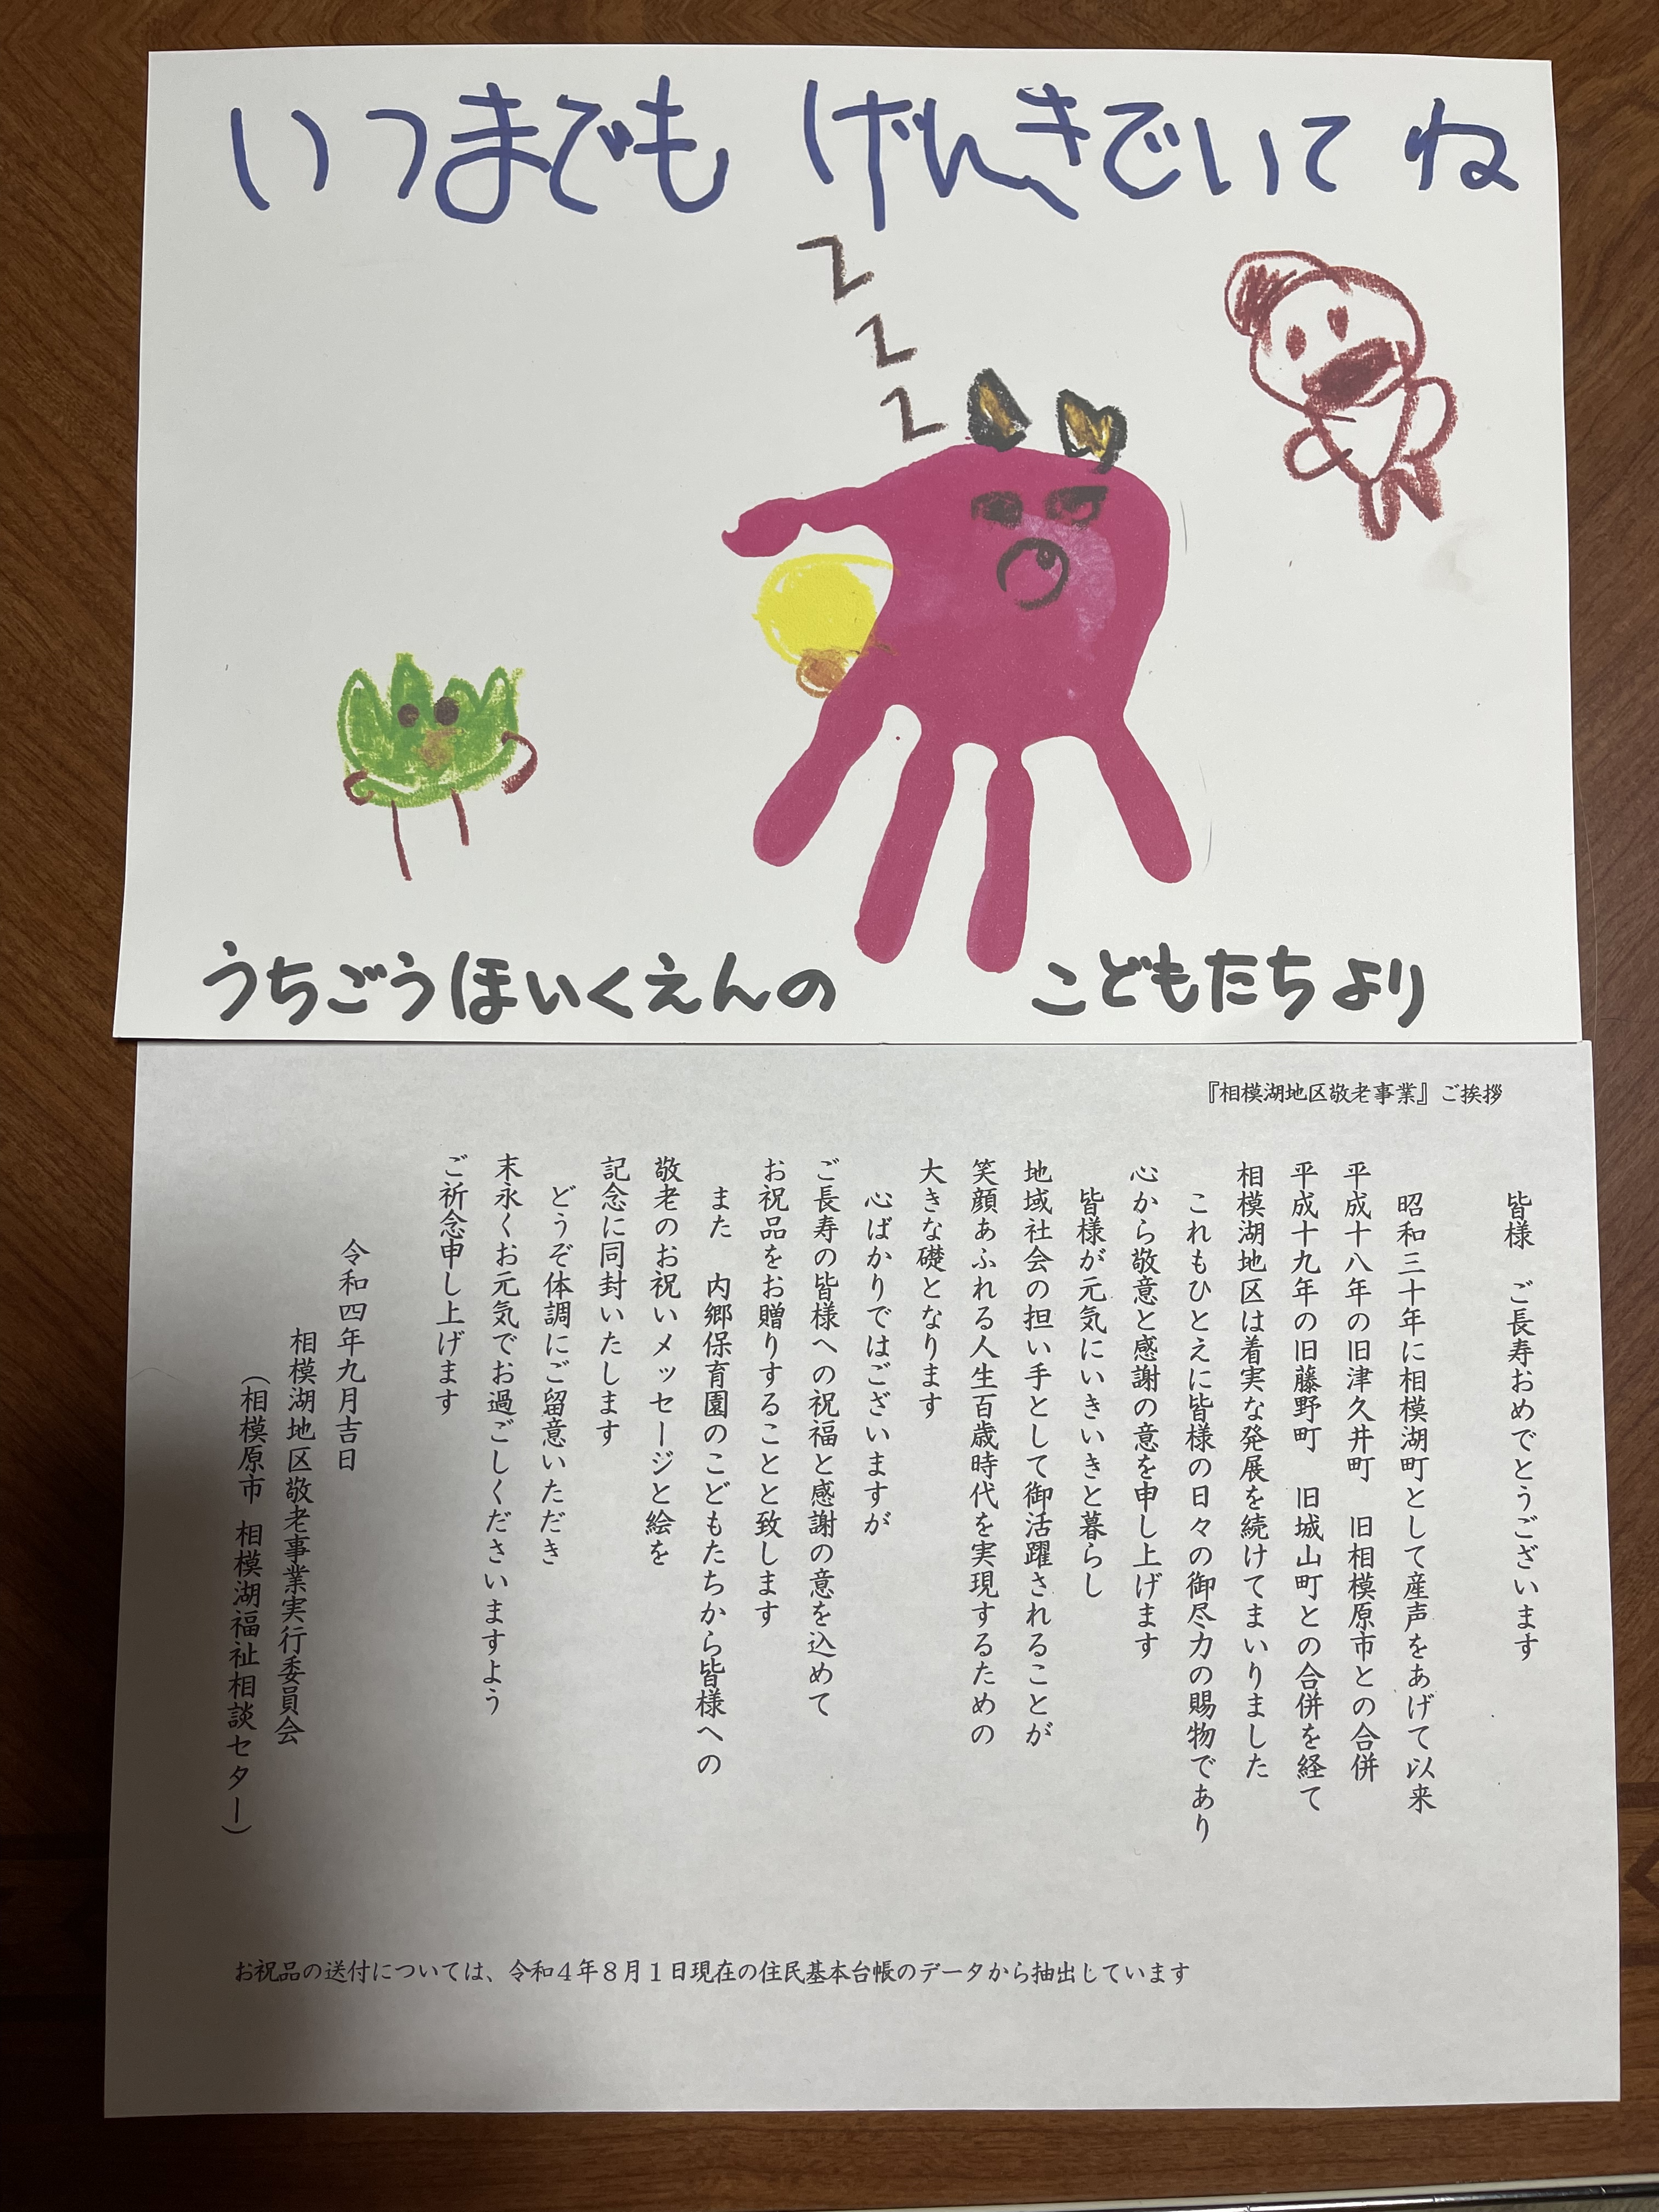 いつまでも げんきでいてね
Z
Z
Z
うちごうほいくえんの こどもたちより
『相模湖地区敬老事業』ご挨拶
皆様 ご長寿おめでとうございます
昭和三十年に相模湖町として産声をあげて以来
平成十八年の旧津久井町 旧相模原市との合併
平成十九年の旧藤野町 旧城山町との合併を経て
相模湖地区は着実な発展を続けてまいりました
これもひとえに皆様の日々の御尽力の賜物であり
心から敬意と感謝の意を申し上げます
皆様が元気にいきいきと暮らし
地域社会の担い手として御活躍されることが
笑顔あふれる人生百歳時代を実現するための
大きな礎となります
心ばかりではございますが
ご長寿の皆様への祝福と感謝の意を込めて
お祝品をお贈りすることと致します
また 内郷保育園のこどもたちから皆様への
敬老のお祝いメッセージと絵を
記念に同封いたします
どうぞ体調にご留意いただき
末永くお元気でお過ごしくださいますよう
ご祈念申し上げます
令和四年九月吉日
相模湖地区敬老事業実行委員会
（相模原市 相模湖福祉相談センター）
お祝品の送付については、令和４年８月１日現在の住民基本台帳のデータから抽出しています